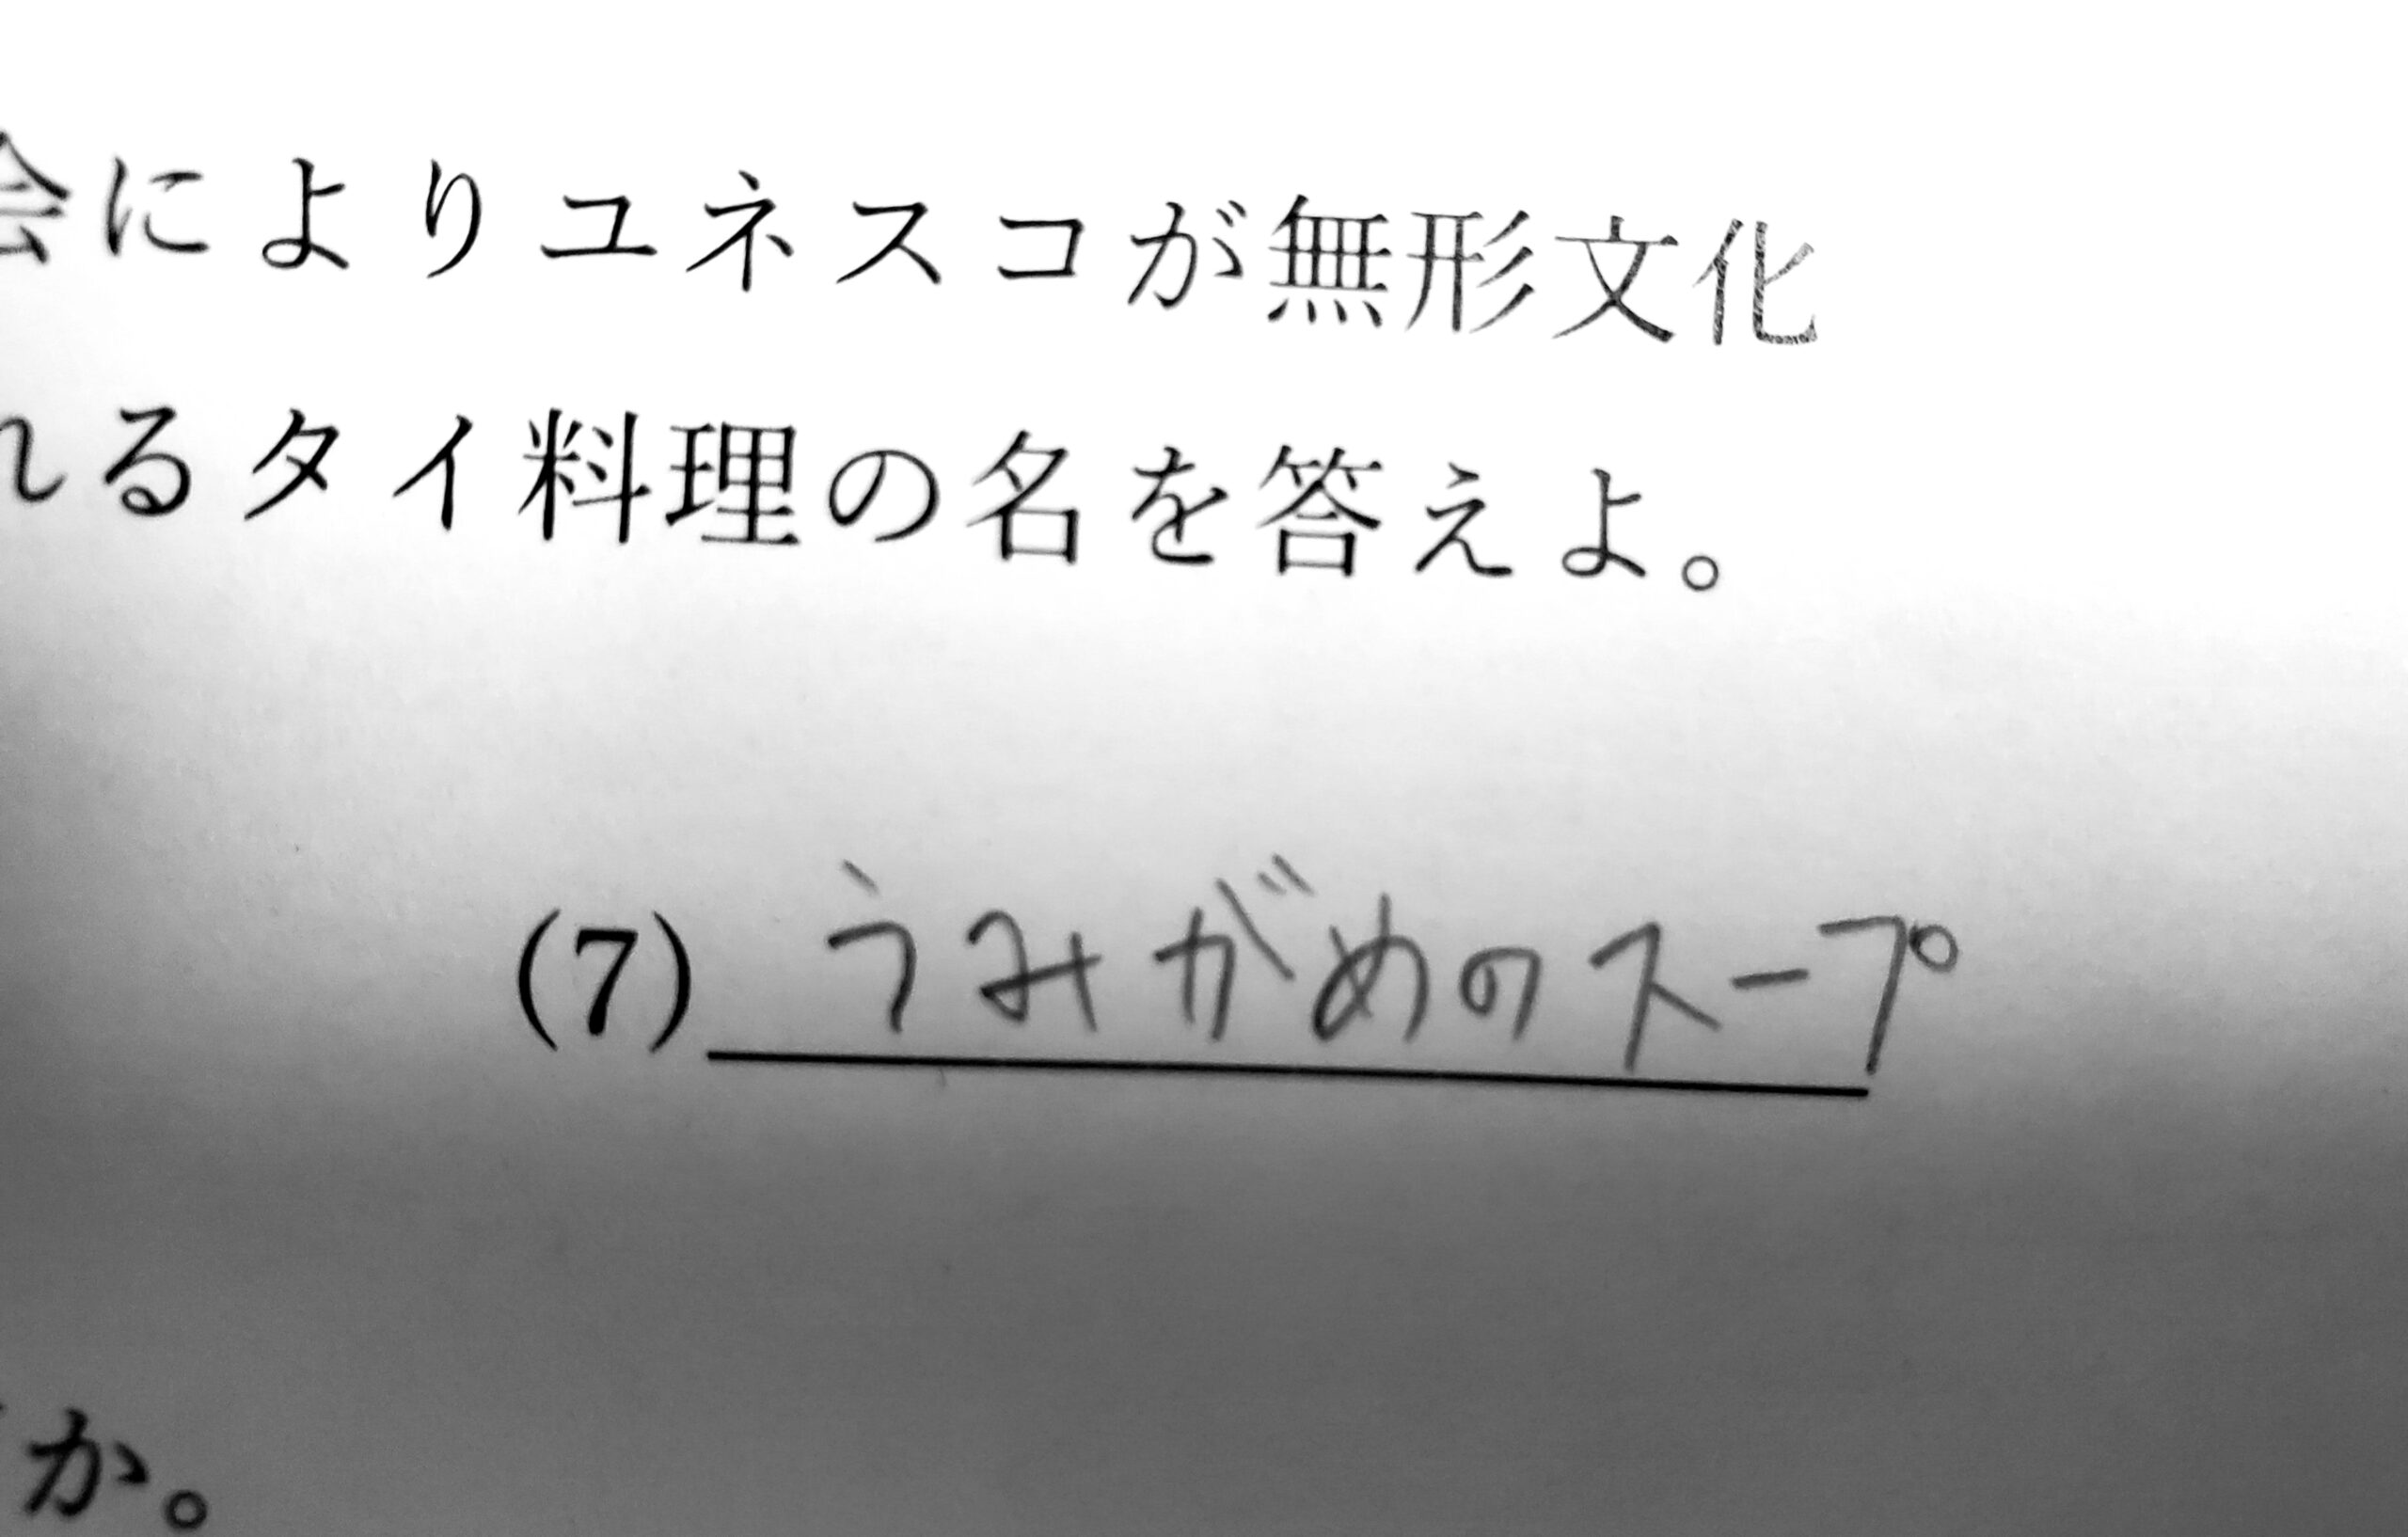 会によりユネスコが無形文化
れるタイ料理の名を答えよ。
(7) うみがめのスープ
か。